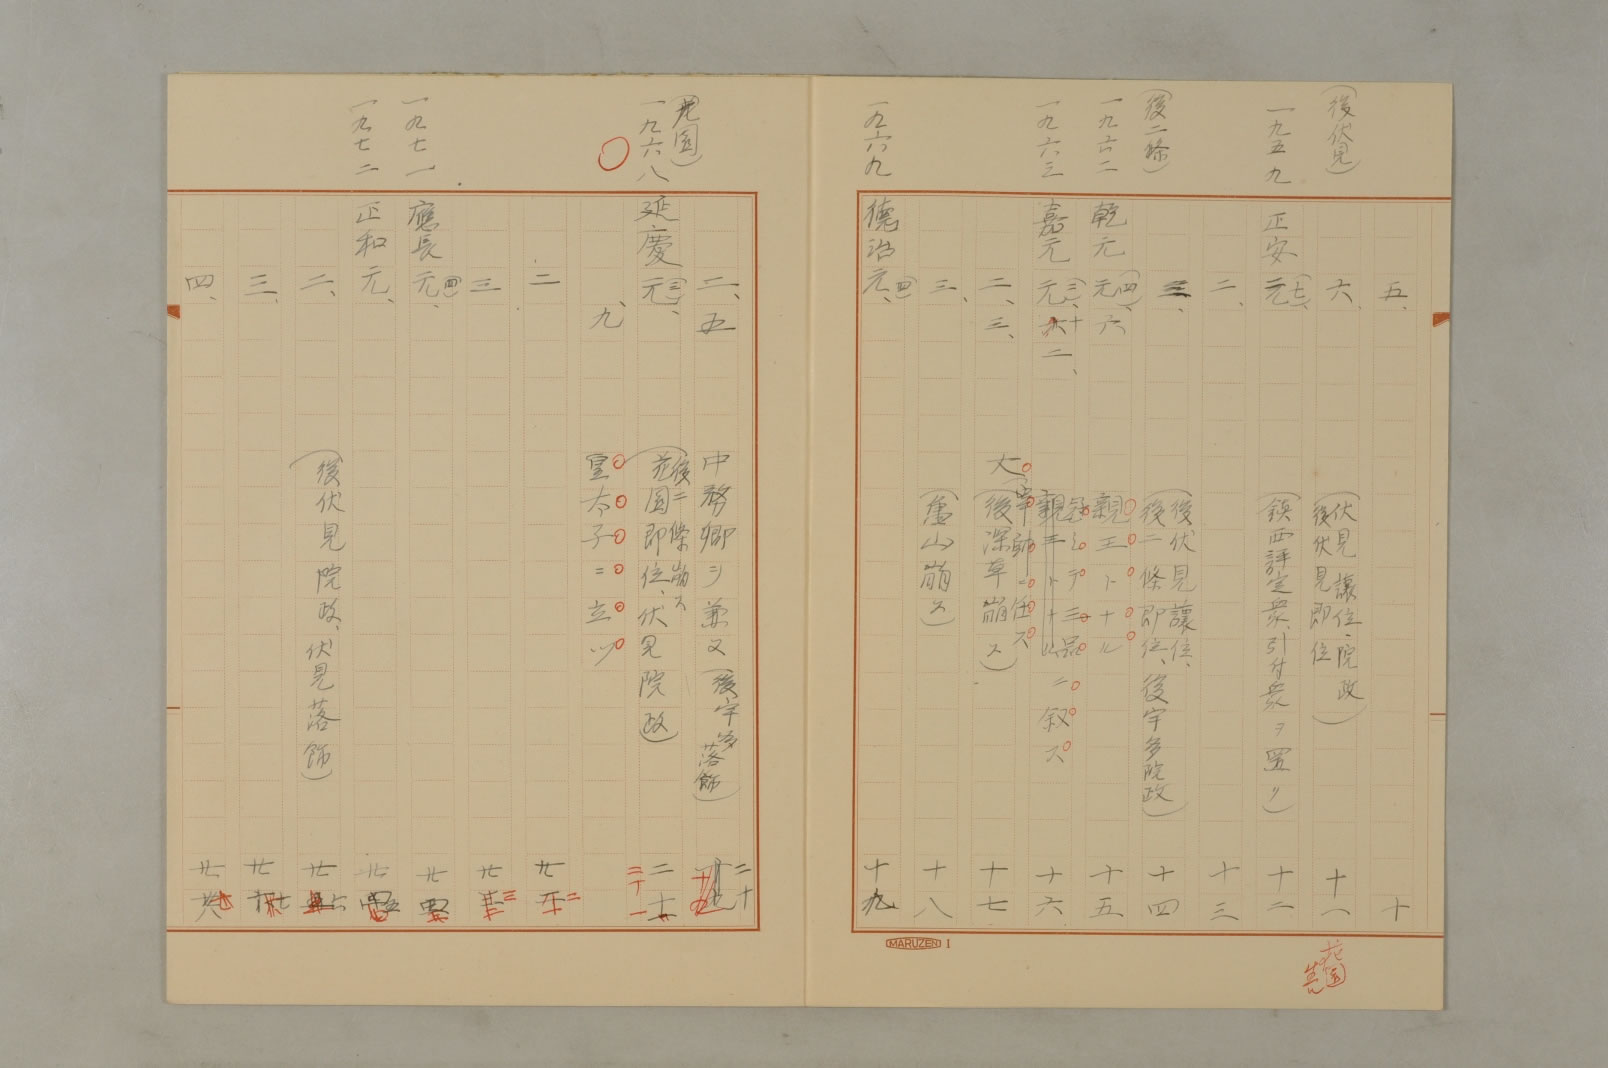 五、
十
（後伏見）
六、
伏見讓位、院政
後伏見即位）
十一
一九五九
正安元、（七）
（鎮西評定衆、引付衆ヲ置ク）
十二
二、
十三
（後二條）
三、
後伏見讓位、
後二條即位、後宇多院政）
十四
一九六二
乾元元（四）、六
親王トナル
十五
一九六三
嘉元元（三）、十二、
三品ニ叙ス
親王トナル
十六
二、三、
大宰帥ニ任ス
（後深草崩ス）
十七
三、
（亀山崩ス）
十八
一九六九
德治元、（四）
十九
MARUZEN 1
花园
二、五
中務卿ヲ兼又（後宇多落飾）
二十
（花园）
一九六八
延慶元（三）、
後二條崩ス
花園即位、伏見院政）
二十一
九、
皇太子ニ立ツ
二
廿二
三
廿三
一九七一
應長元、（四）
廿四
一九七二
正和元、
廿五
二、
（後伏見院政、伏見落飾）
廿六
三、
廿七
四、
廿八